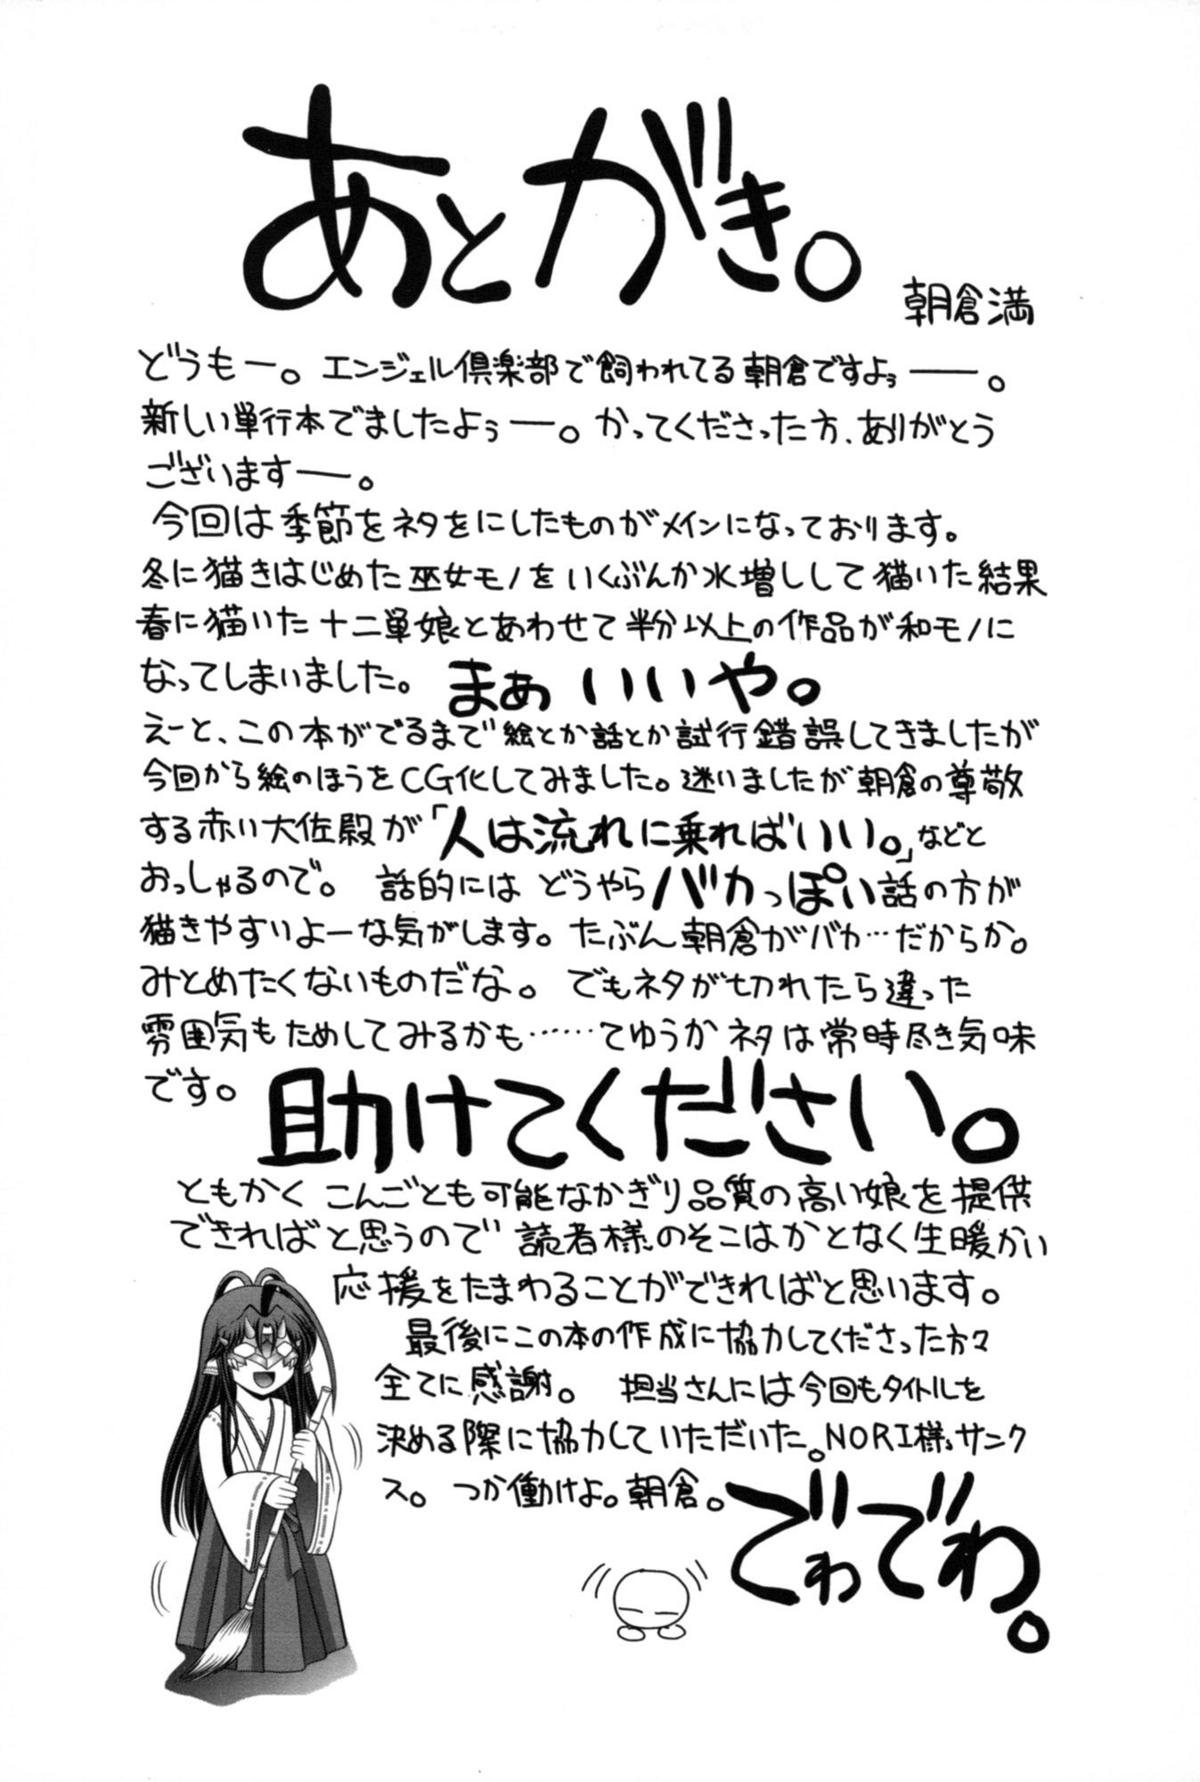 あとがき。
朝倉満
どうもー。エンジェル倶楽部で飼われてる朝倉ですよぅ――。
新しい単行本でましたよぅ―。かってくださった方、ありがとう
ございます―。
今回は季節をネタをにしたものがメインになっております。
冬に猫きはじめた巫女モノをいくぶんか水増しして猫いた結果
春に猫いた十二単娘とあわせて半分以上の作品が和モノに
なってしまいました。まぁいいや。
えーと、この本がでるまで絵とか話とか試行錯誤してきましたが
今回から絵のほうをCG化してみました。迷いましたが朝倉の尊敬
する赤い大佐殿が「人は流れに乗ればいい。」などと
おっしゃるので。話的にはどうやらバカっぽい話の方が
猫きやすいよーな気がします。たぶん朝倉がバカ…だからか。
みとめたくないものだな。でもネタが切れたら違った
雰囲気もためしてみるかも……てゆうかネタは常時尽き気味
です。助けてください。
ともかくこんごとも可能なかぎり品質の高い娘を提供
できればと思うので読者様のそこはかとなく生暖かい
応援をたまわることができればと思います。
最後にこの本の作成に協力してくださった方々
全てに感謝。担当さんには今回もタイトルを
決める際に協力していただいた。NORI様サンク
ス。つか働けよ。朝倉。でわでわ。